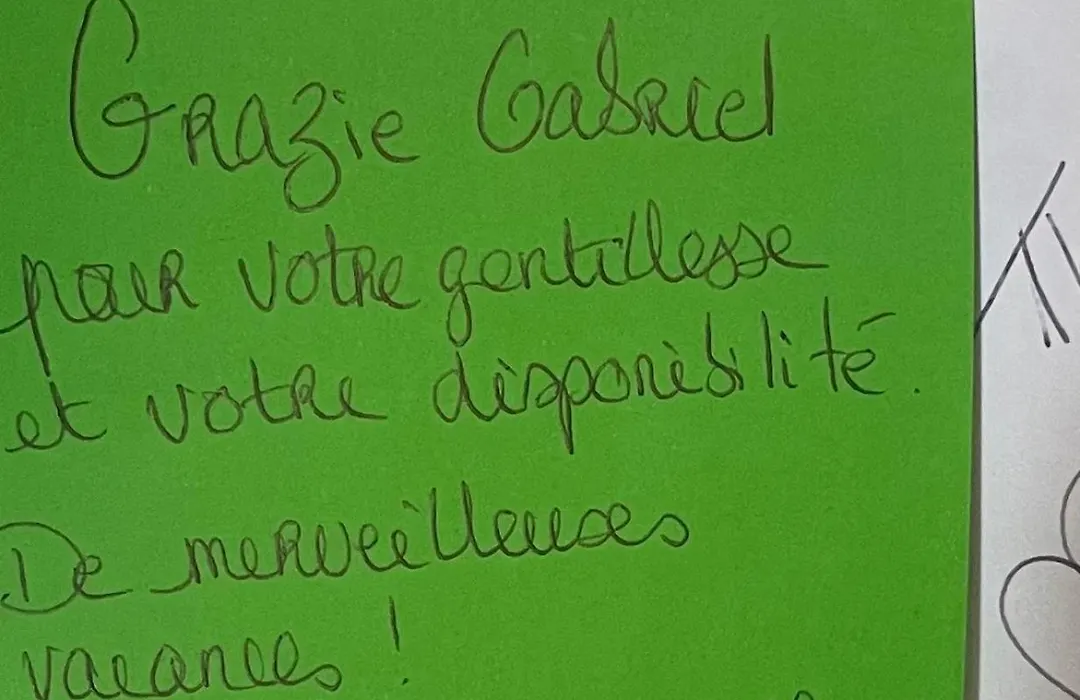 Grazie Gabriel
pour votre gentillesse
et votre disponibilité.
De merveilleuses
vacances !